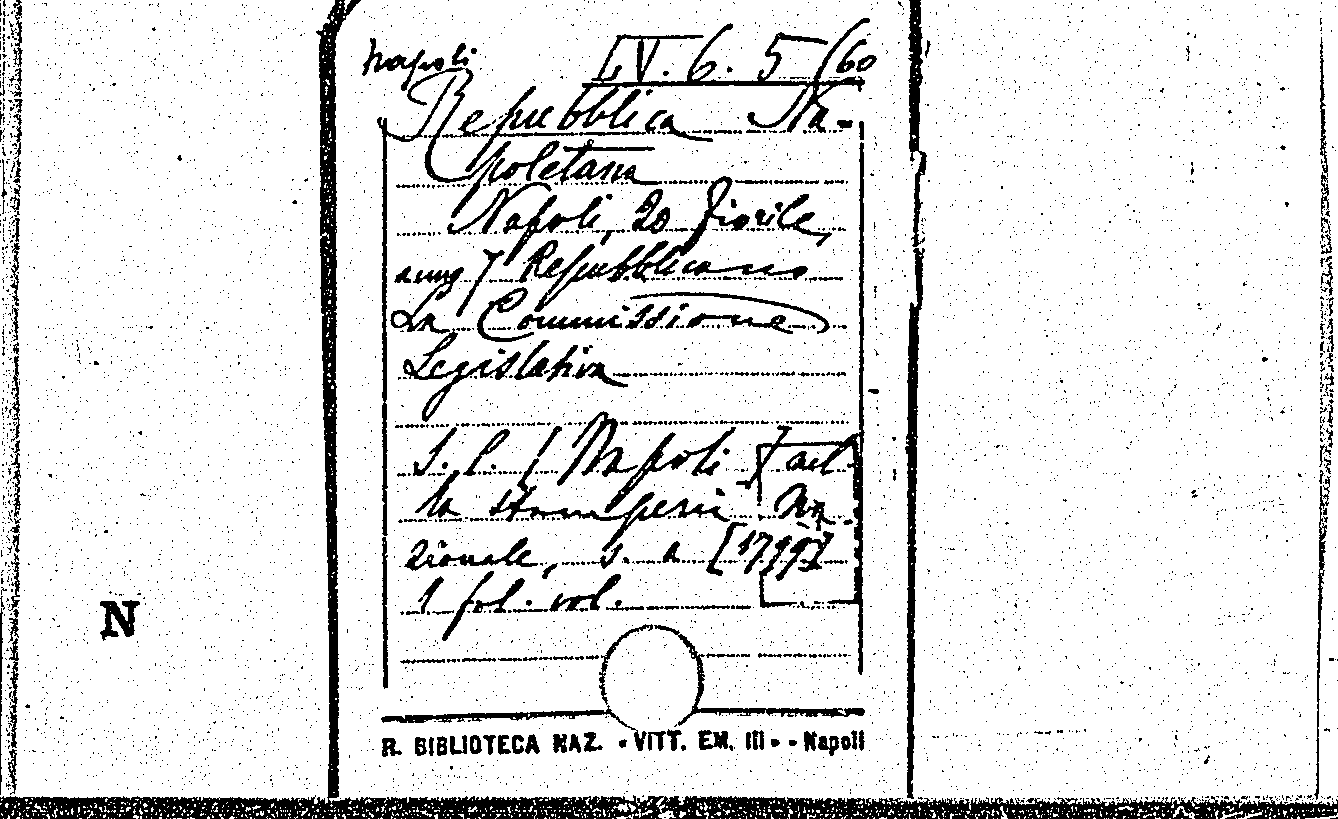 Napoli
LV. 6. 5 (60
Repubblica Na-
poletana
Napoli, 20 fiorile,
anno 7 Repubblicano
La Commissione
Legislativa
s. l. [Napoli] nel
la stamperia Na
zionale, s. a [1799]
1 fol. vol.
N
R. BIBLIOTECA NAZ. • VITT. EM. III • - Napoli